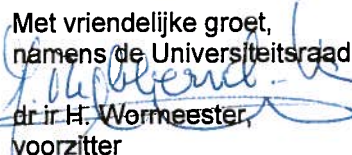 Met vriendelijke groet,
namens de Universiteitsraad
dr ir H. Wormeester,
voorzitter